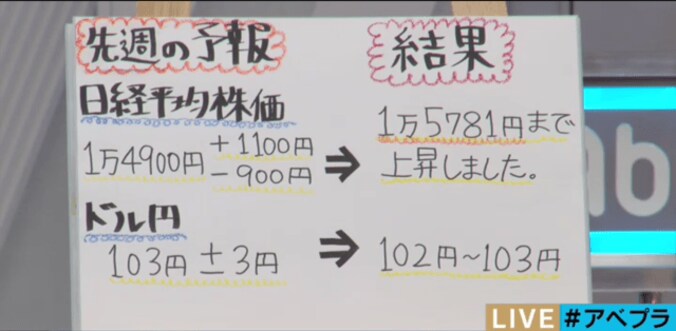 先週の予報
結果
日経平均株価
1万4900円 +1100円
-900円
⇒
1万5781円まで
上昇しました。
ドル円
103円±3円
⇒
102円~103円
LIVE #アベプラ